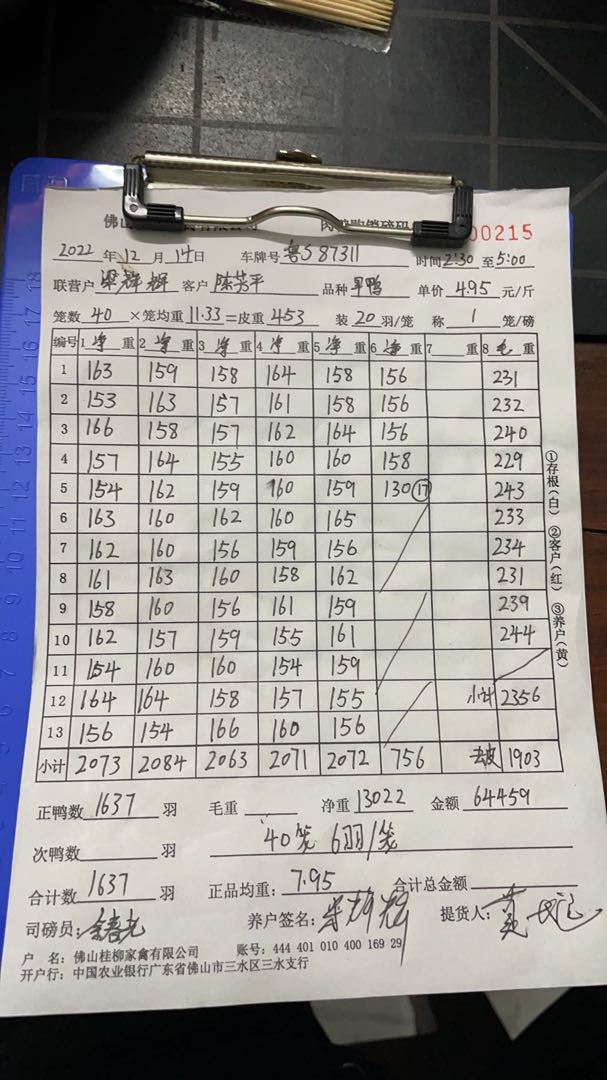 佛山 有限公司 肉鸭购销磅码 00215
2022 年 12 月 14 日 车牌号 粤S 87311 时间 2:30 至 5:00
联营户 梁群辉 客户 陈芳平 品种 平鸭 单价 4.95 元/斤
笼数 40 ×笼均重 11.33 =皮重 453 装 20 羽/笼 称 1 笼/磅
编号 1 净 重 2 净 重 3 净 重 4 净 重 5 净 重 6 净 重 7 重 8 毛 重
1 163 159 158 164 158 156 231
2 153 163 157 161 158 156 232
3 166 158 157 162 164 156 240
4 157 164 155 160 160 158 229
5 154 162 159 160 159 130 ⑰ 243
6 163 160 162 160 165 233
7 162 160 156 159 156 234
8 161 163 160 158 162 231
9 158 160 156 161 159 239
10 162 157 159 155 161 244
11 154 160 160 154 159
12 164 164 158 157 155 小计 2356
13 156 154 166 160 156
小计 2073 2084 2063 2071 2072 756 去皮 1903
①存根(白) ②客户(红) ③养户(黄)
正鸭数 1637 羽 毛重 净重 13022 金额 64459
次鸭数 羽 40笼 6羽/笼
合计数 1637 羽 正品均重: 7.95 合计总金额
司磅员: 养户签名: 提货人:
户 名: 佛山桂柳家禽有限公司 账号: 444 401 010 400 169 29
开户行: 中国农业银行广东省佛山市三水区三水支行